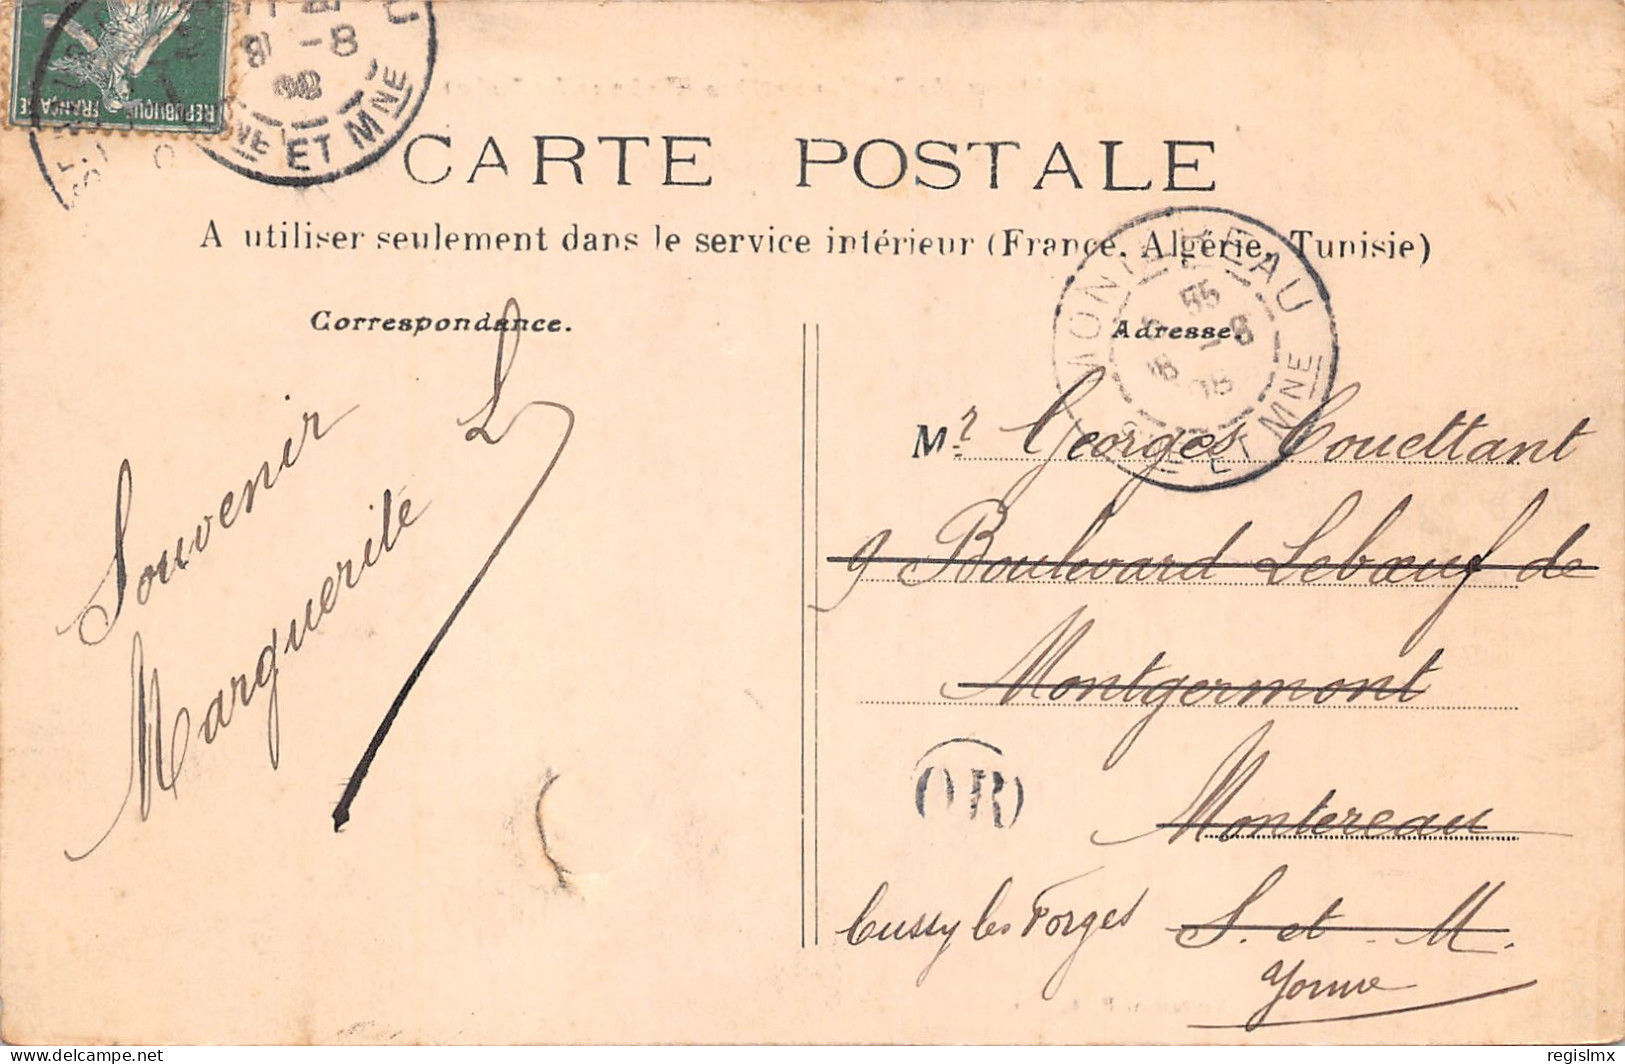 REPUBLIQUE FRANÇAISE
8 -8
ET MNE
CARTE POSTALE
A utiliser seulement dans le service intérieur (France, Algérie, Tunisie)
Correspondance.
Adresse.
MONTEREAU
8 -8
08
ET MNE
Souvenir
Marguerite L
Mr Georges Couettant
9 Boulevard Lebœuf de
Montgermont
OR
Montereau
Cussy les Forges S. et M.
Yonne
delcampe.net
regislmx